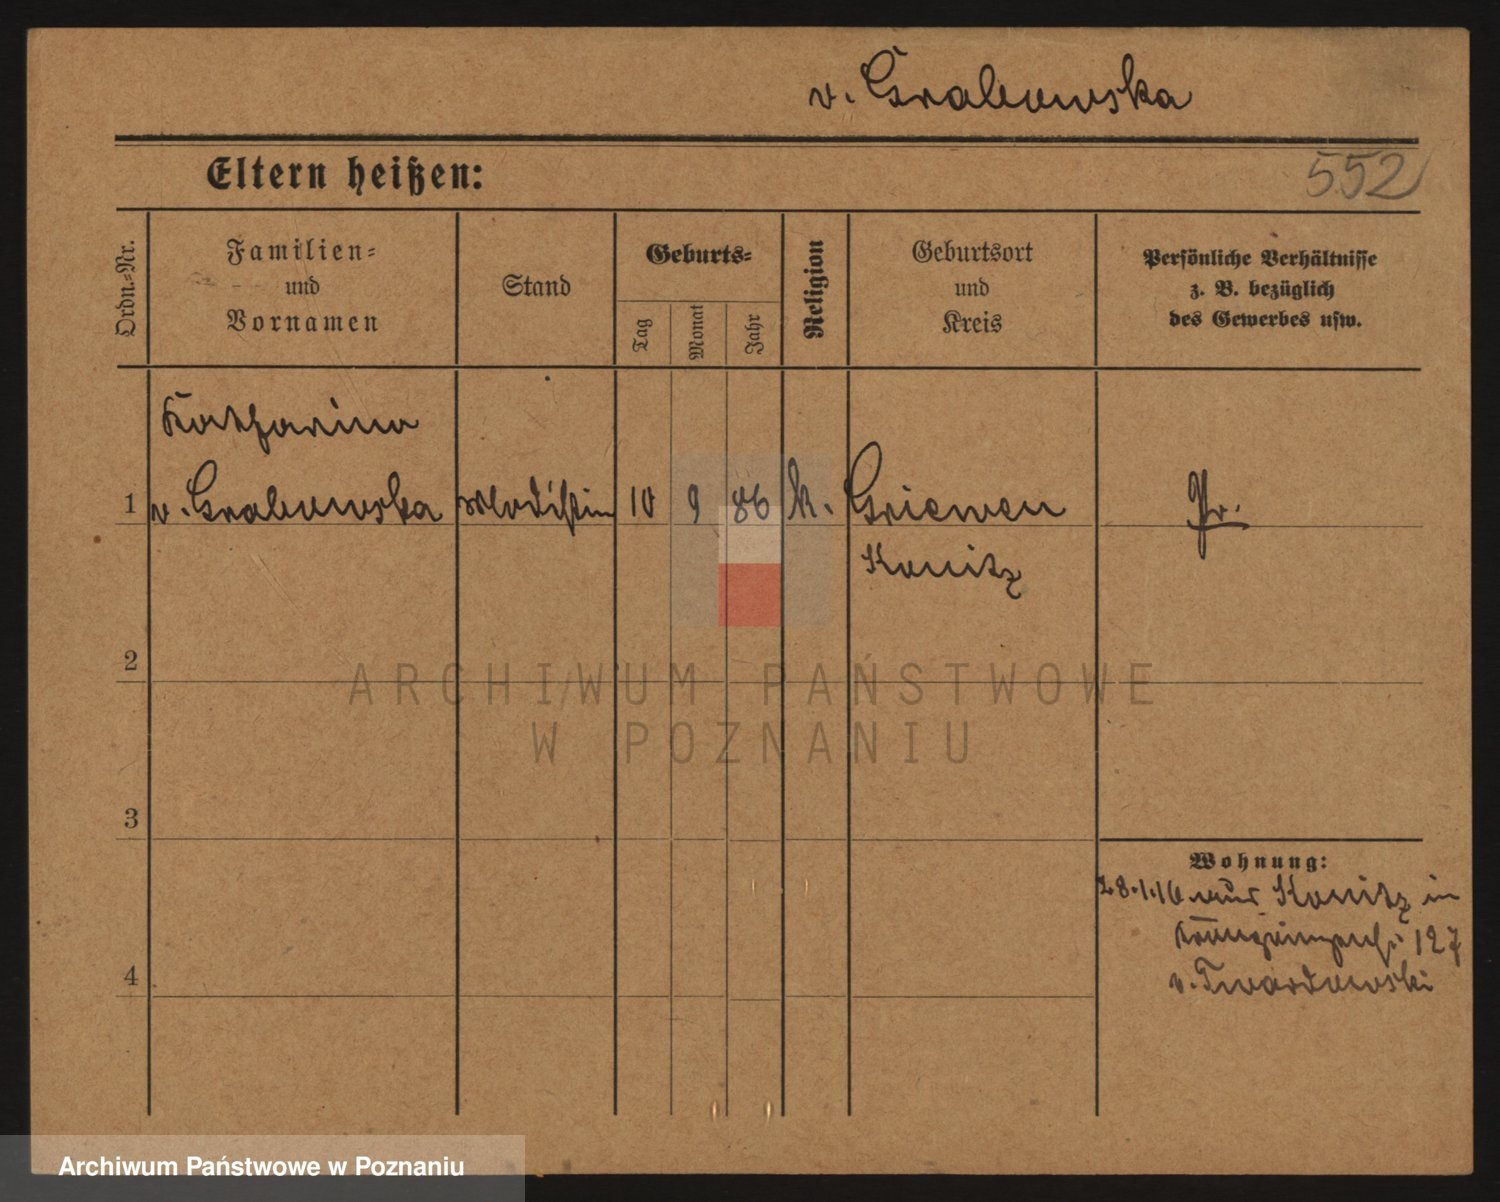 v. Grabowska
Eltern heißen:
552
Ordn.-Nr.
Familien-
und
Vornamen
Stand
Geburts-
Tag
Monat
Jahr
Religion
Geburtsort
und
Kreis
Persönliche Verhältnisse
z. B. bezüglich
des Gewerbes usw.
Katharina
1 v. Grabowska Modistin 10 9 86 k. Griewen Pr.
Konitz
2
ARCHIWUM PAŃSTWOWE
W POZNANIU
3
Wohnung:
28.1.16 aus Konitz in
127
4
v. Twardowski
Archiwum Państwowe w Poznaniu